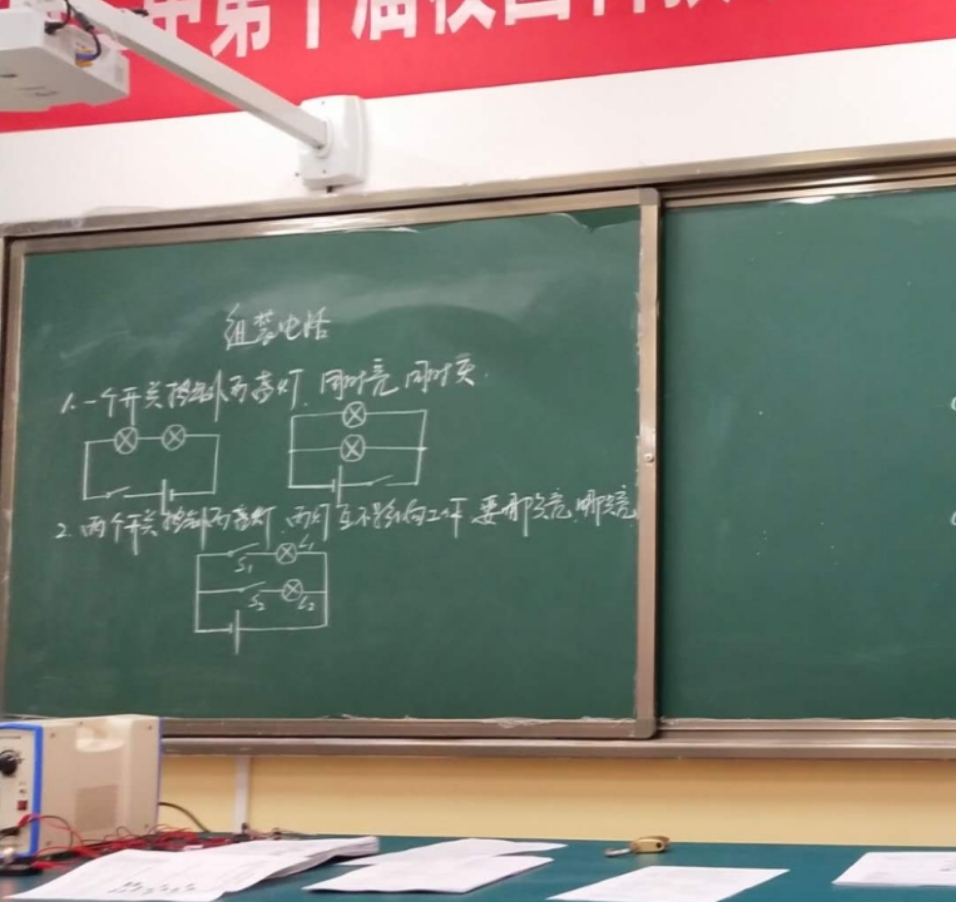 中第十届校园科技
组装电路
1.一个开关控制两盏灯,同时亮,同时灭.
2.两个开关控制两盏灯,两灯互不影响工作,要哪盏亮,哪盏亮
S₁ L₁
S₂ L₂